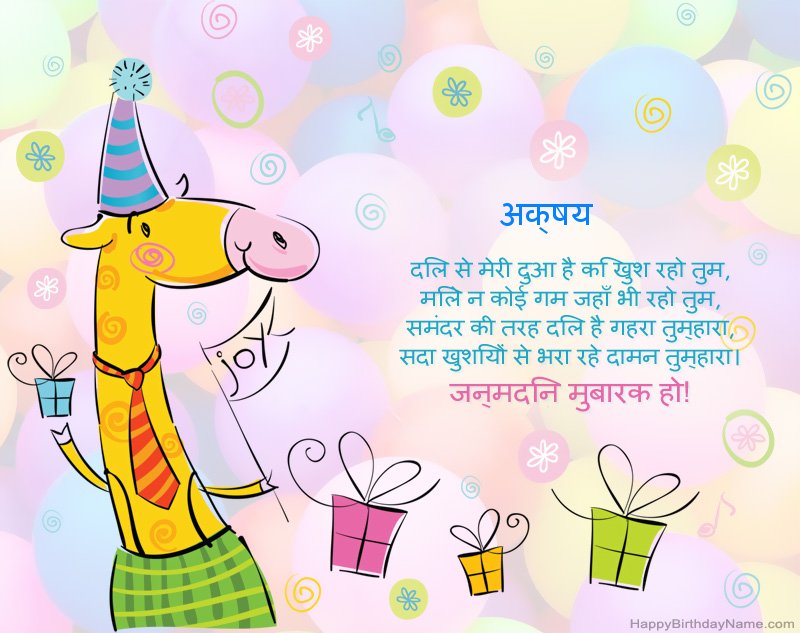 अक्षय
दिल से मेरी दुआ है कि खुश रहो तुम,
मिले न कोई गम जहाँ भी रहो तुम,
समंदर की तरह दिल है गहरा तुम्हारा,
सदा खुशियों से भरा रहे दामन तुम्हारा।
जन्मदिन मुबारक हो!
joy
HappyBirthdayName.com